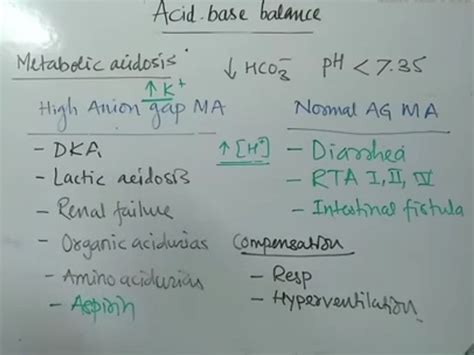 Acid-base balance
Metabolic acidosis
↓ HCO3⁻ pH < 7.35
↑ K⁺
High Anion gap MA
- DKA
- Lactic acidosis
- Renal failure
- Organic acidurias
- Aminoacidurias
- Aspirin
↑ [H⁺]
Normal AG MA
- Diarrhea
- RTA I, II, IV
- Intestinal fistula
Compensation
- Resp
- Hyperventilation